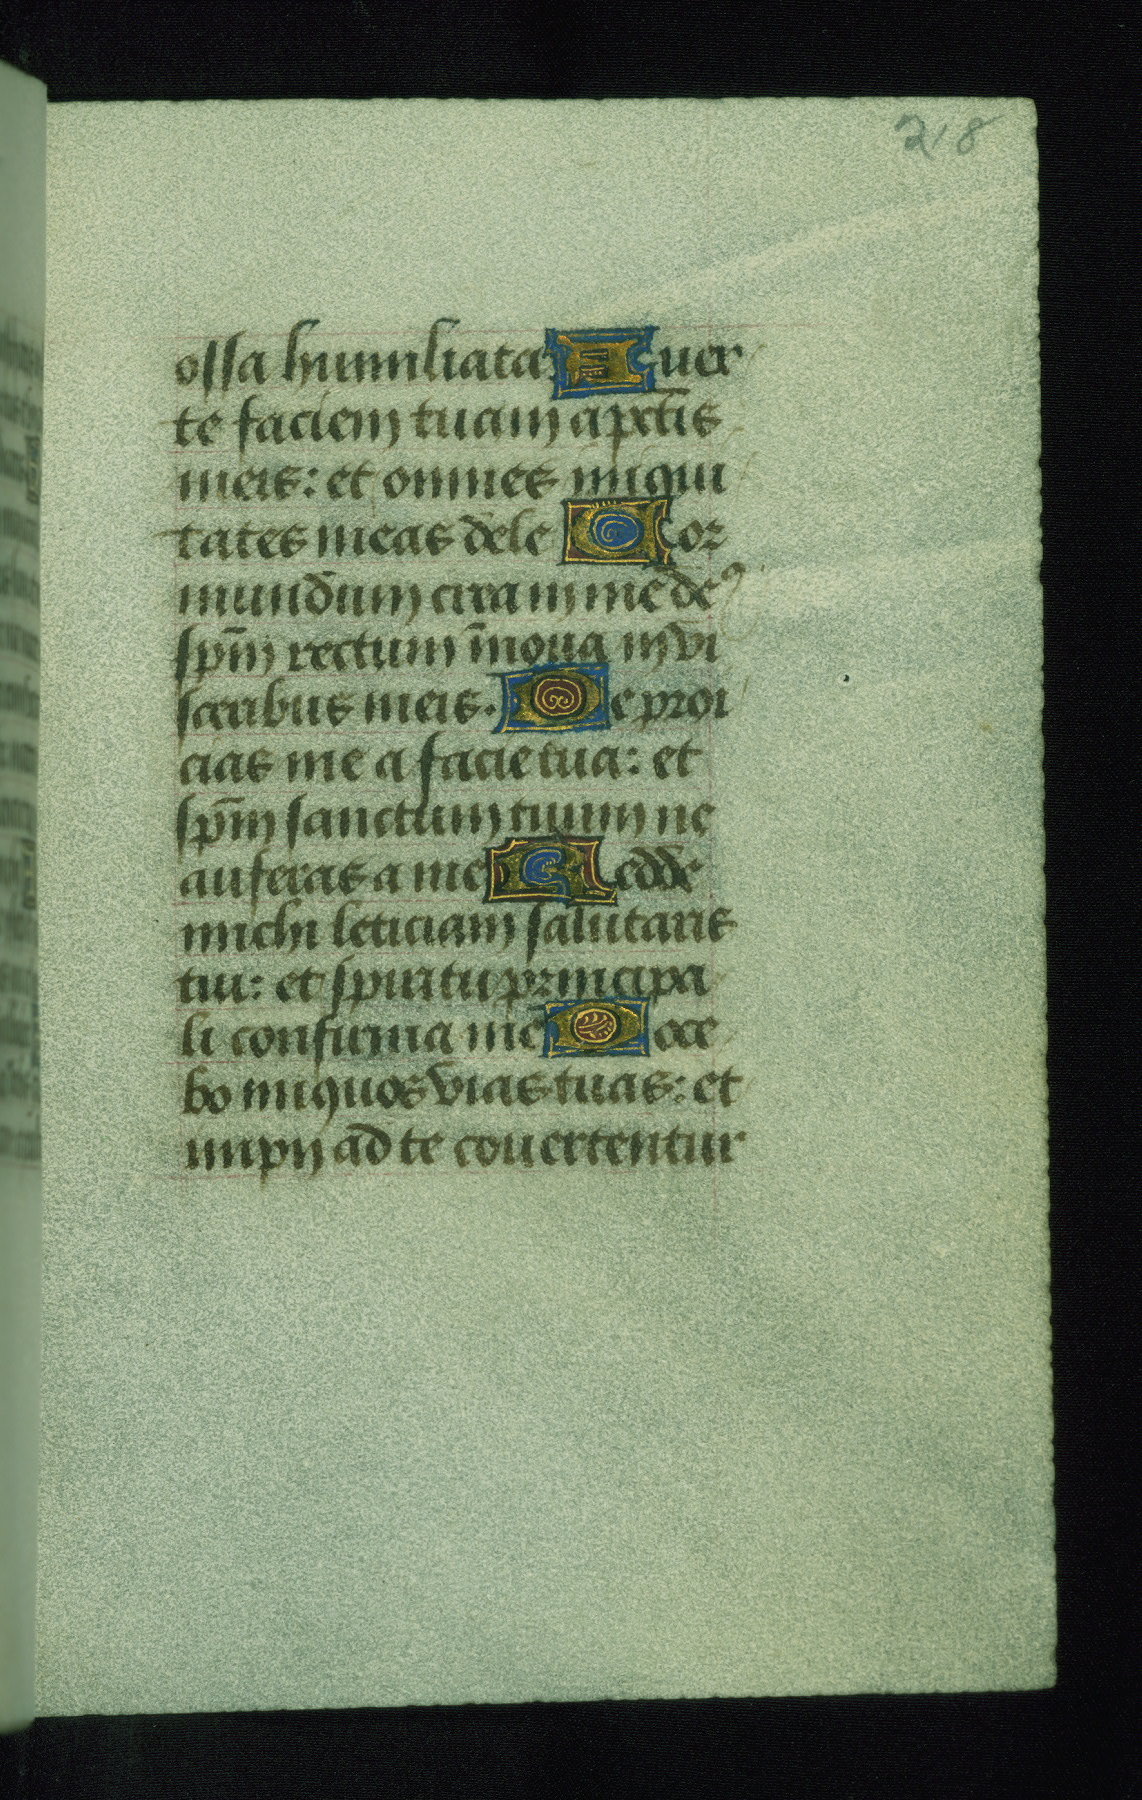 218
ossa humiliata: Auer
te faciem tuam a pctīs
meis: et omnes iniqui
tates meas dele Cor
mundum crea in me deꝰ
sp̄m rectum īnoua in vi
sceribus meis. Ne proi
cias me a facie tua: et
sp̄m sanctum tuum ne
auferas a me Redde
michi leticiam salutaris
tui: et spiritu principa
li confirma me Doce
bo iniquos vias tuas: et
impij ad te conuertentur